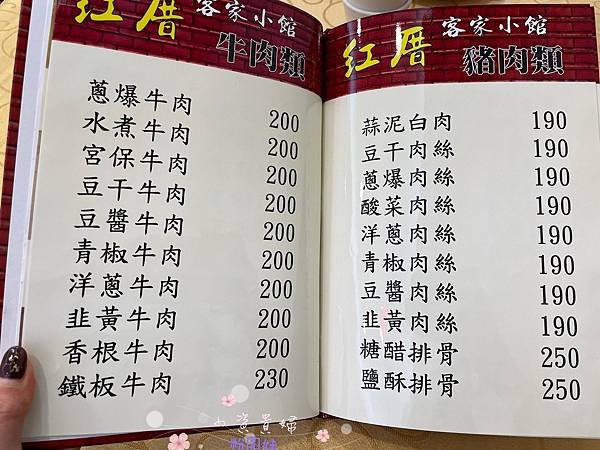 红厝 客家小館
牛肉類
蔥爆牛肉 200
水煮牛肉 200
宮保牛肉 200
豆干牛肉 200
豆醬牛肉 200
青椒牛肉 200
洋蔥牛肉 200
韭黃牛肉 200
香根牛肉 200
鐵板牛肉 230
红厝 客家小館
豬肉類
蒜泥白肉 190
豆干肉絲 190
蔥爆肉絲 190
酸菜肉絲 190
洋蔥肉絲 190
青椒肉絲 190
豆醬肉絲 190
韭黃肉絲 190
糖醋排骨 250
鹽酥排骨 250
小資貴婦